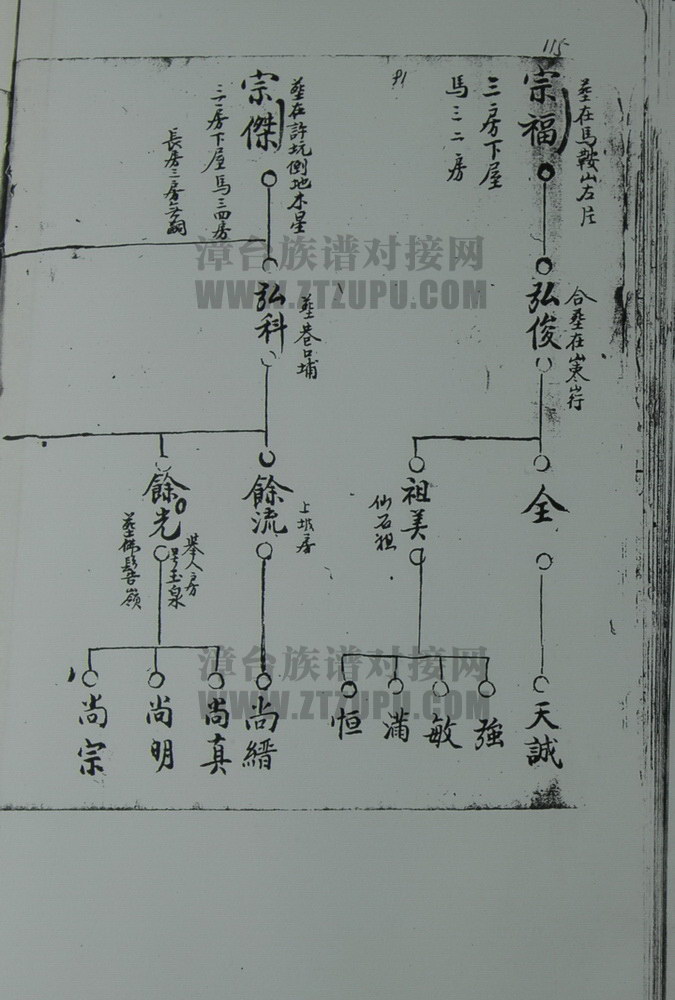 115
91
葬在馬鞍山左片
宗福
三房下屋
馬三二房
弘俊
合葬在寒山行
全
祖美
仙石祖
天誠
強
敏
滿
恒
葬在許坑倒地木星
宗傑
三房下屋馬三四房
長房三房無嗣
弘科
葬巷口埔
餘流
上城房
餘光
舉人房
号玉泉
尚縉
尚真
尚明
尚宗
漳台族谱对接网
WWW.ZTZUPU.COM
漳台族谱对接网
WWW.ZTZUPU.COM